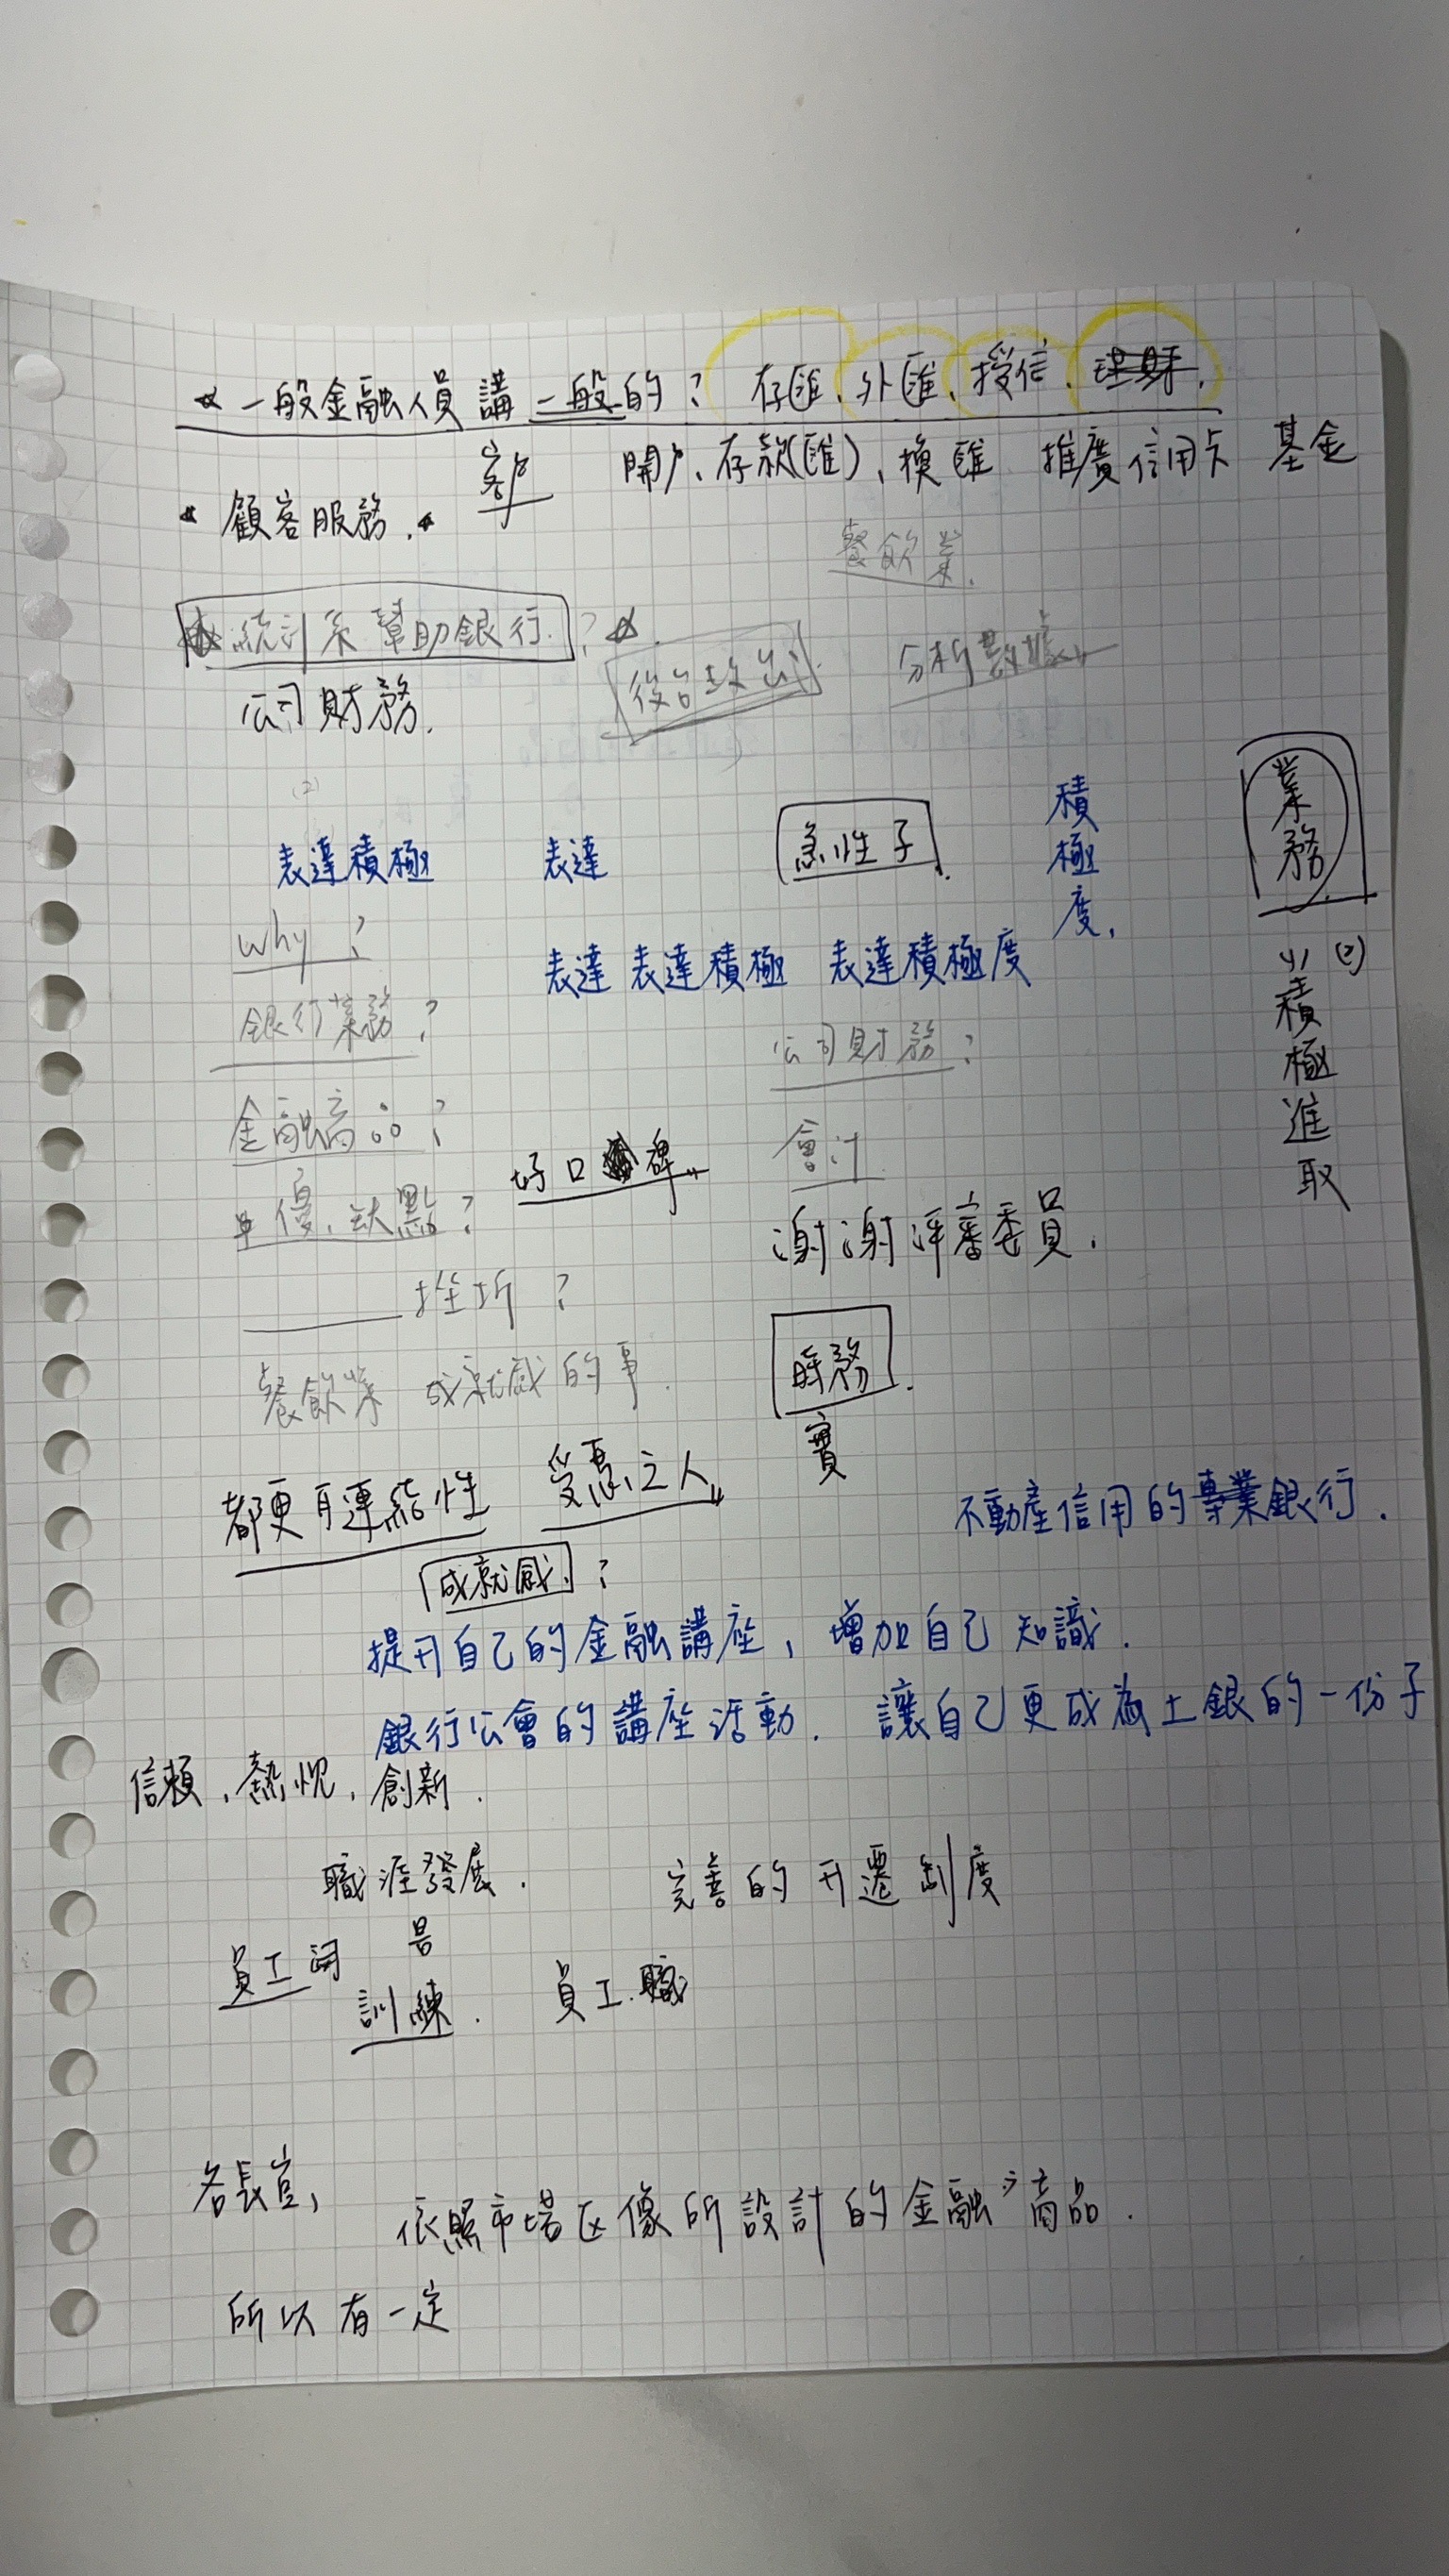 一般金融人員 講一般的? 存匯、外匯、授信、理財.
客戶 開戶、存款(匯)、換匯 推廣信用卡 基金
顧客服務.
餐飲業.
統計系幫助銀行.?
後台支出 分析數據
公司財務.
(2)
表達積極 表達 急性子. 積極度,
業務
why? 表達 表達積極 表達積極度
(2) 積極進取
銀行業務? 公司財務?
金融商品? 好口碑 會計
優、缺點? 謝謝評審委員.
挫折?
餐飲業 成就感的事. 時務.
實
都更 連結性 受惠之人 不動產信用的專業銀行.
成就感.?
提升自己的金融講座, 增加自己 知識.
銀行公會的講座活動. 讓自己更成為土銀的一份子
信賴, 熱忱, 創新.
職涯發展. 完善的升遷制度
員工
訓練. 員工.職
各長官,
依照市場 所設計的金融商品.
所以有一定